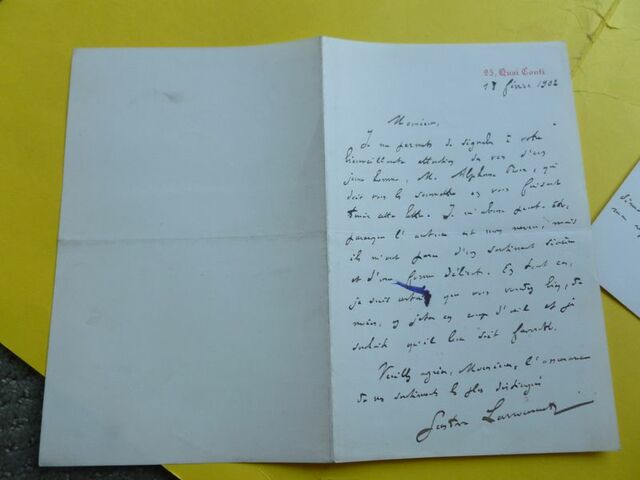 25, Quai Conti
18 février 1902
Monsieur,
Je me permets de signaler à votre
bienveillante attention des vers d'un
jeune homme, M. Alphonse qui
doit vous les soumettre en vous faisant
tenir cette lettre. Je m'abuse peut-être,
parce que l'auteur est mon neveu, mais
il m'a paru d'un sentiment sincère
et d'une forme délicate. En tout cas,
je suis certain que vous voudrez bien, du
moins, y jeter un coup d'œil et je
souhaite qu'il leur soit favorable.
Veuillez agréer, Monsieur, l'assurance
de mes sentiments les plus distingués
Gustave Larroumet